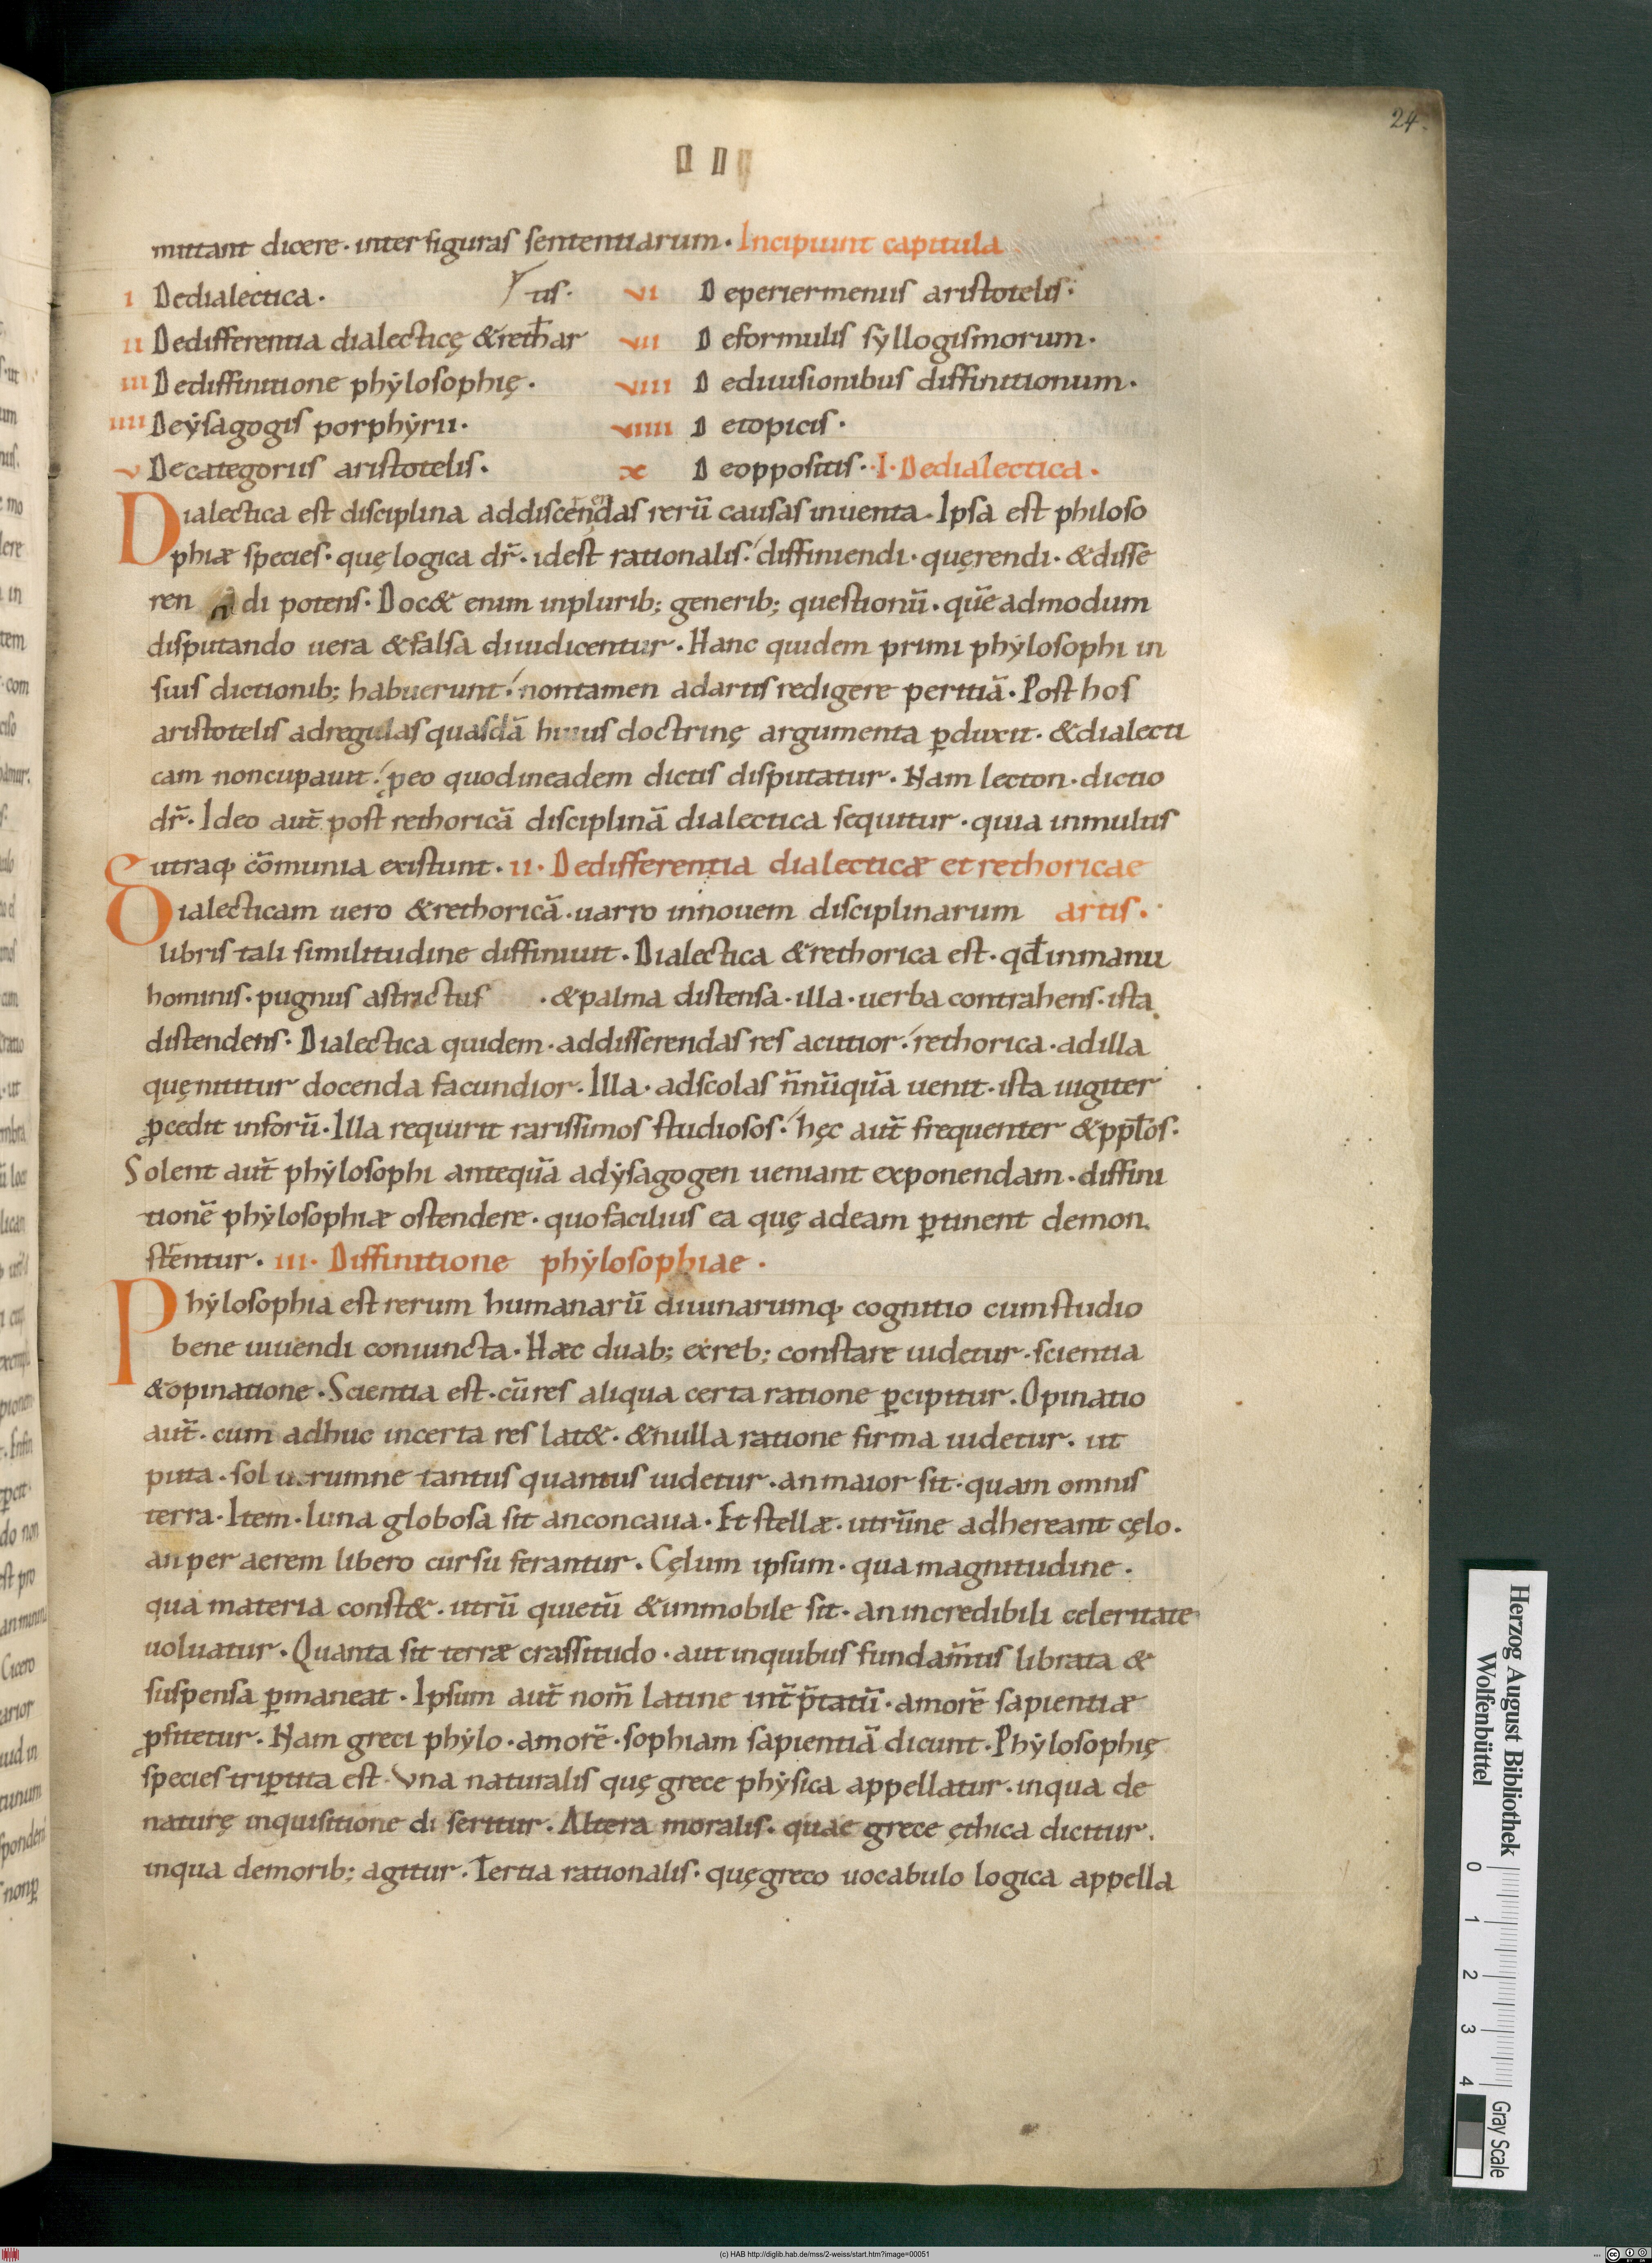 24.
mittant dicere· inter figuras sententiarum· Incipiunt capitula
I Dedialectica· tis·
II Dedifferentia dialecticę &rethar
III Dediffinitione phẏlosophię·
IIII Deẏsagogis porphẏrii·
V Decategoriis aristotelis·
VI D eperiermeniis aristotelis·
VII D eformulis syllogismorum·
VIII D ediuisionibus diffinitionum·
VIIII D etopicis·
X D eoppositis· I· Dedialectica·
Dialectica est disciplina addiscendas rerū causas inuenta· Ipsa est philoso
phiæ species· quę logica dr̄· idest rationalis· diffiniendi· quęrendi· &disse
ren di potens· Doc& enim inplurib; generib; questionū· quēadmodum
disputando uera &falsa diiudicentur· Hanc quidem primi phẏlosophi in
suis dictionib; habuerunt· nontamen adartis redigere peritiā· Post hos
aristotelis adregulas quasdā huius doctrinę argumenta ꝑduxit· &dialecti
cam noncupauit· ꝓeo quodineadem dictis disputatur· Nam lecton· dictio
dr̄· Ideo aut̄ post rethoricā disciplinā dialectica sequitur· quia inmultis
utraq; cōmunia existunt· II· Dedifferentia dialecticæ et rethoricae
Dialecticam uero &rethoricā· uarro innouem disciplinarum artis·
libris tali similitudine diffiniuit· Dialectica &rethorica est· qd̄inmanu
hominis· pugnus astrictus · &palma distensa· illa· uerba contrahens· ista
distendens· Dialectica quidem· addisserendas res acutior· rethorica· adilla
quę nititur docenda facundior· Illa· adscolas n̄nūquā uenit· ista iugiter
ꝓcedit inforū· Illa requirit rarissimos studiosos· hęc aut̄ frequenter &ppl̄os·
Solent aut̄ phẏlosophi antequā adẏsagogen ueniant exponendam· diffini
tionē phẏlosophiæ ostendere· quofacilius ea quę adeam ꝑtinent demon
strentur· III· Diffinitione phẏlosophiae·
Phẏlosophia est rerum humanarū diuinarumq; cognitio cumstudio
bene uiuendi coniuncta· Hæc duab; exreb; constare uidetur· scientia
&opinatione· Scientia est· cūres aliqua certa ratione ꝑcipitur· Opinatio
aut̄· cum adhuc incerta res lat&· &nulla ratione firma uidetur· ut
puta· sol utrumne tantus quantus uidetur· anmaior sit· quam omnis
terra· Item· luna globosa sit anconcaua· Et stellæ· utrūne adhereant cęlo·
an per aerem libero cursu ferantur· Cęlum ipsum· qua magnitudine·
qua materia const&· utrū quietū &inmobile sit· an incredibili celeritate
uoluatur· Quanta sit terræ crassitudo· aut inquibus fundam̄tis librata &
suspensa ꝑmaneat· Ipsum aut̄ nom̄ latine int̄p̄tatū· amorē sapientiæ
ꝓfitetur· Nam greci phẏlo· amorē· sophiam sapientiā dicunt· Phẏlosophię
species triꝑtita est· Vna naturalis quę grece phẏsica appellatur· inqua de
naturę inquisitione di seritur· Altera moralis· quae grece ęthica dicitur·
inqua demorib; agitur· Tertia rationalis· quęgreco uocabulo logica appella
Herzog August Bibliothek
Wolfenbüttel
0 1 2 3 4
Gray Scale
(c) HAB http://diglib.hab.de/mss/2-weiss/start.htm?image=00051